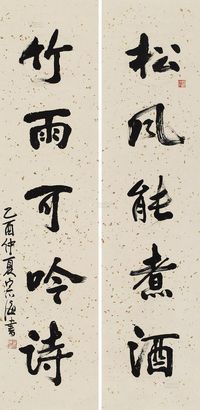 松风能煮酒
竹雨可吟诗
乙酉仲夏
书